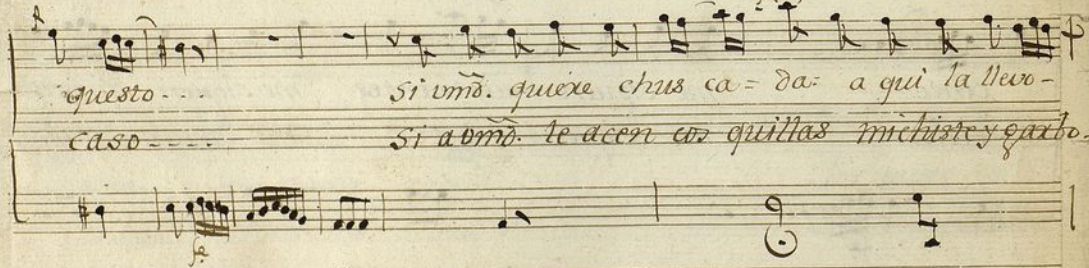 questo - - - - si vm̃d. quiere chus ca = da: a qui la llevo -
caso - - - - si a vm̃d. le acen cos quillas mi chiste y garbo.
fe